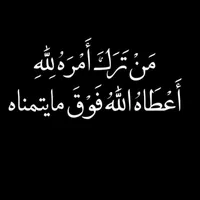 مَنْ تَرَكَ أَمْرَهُ لِلّهِ
أَعْطَاهُ اللهُ فَوْقَ مايتمناه